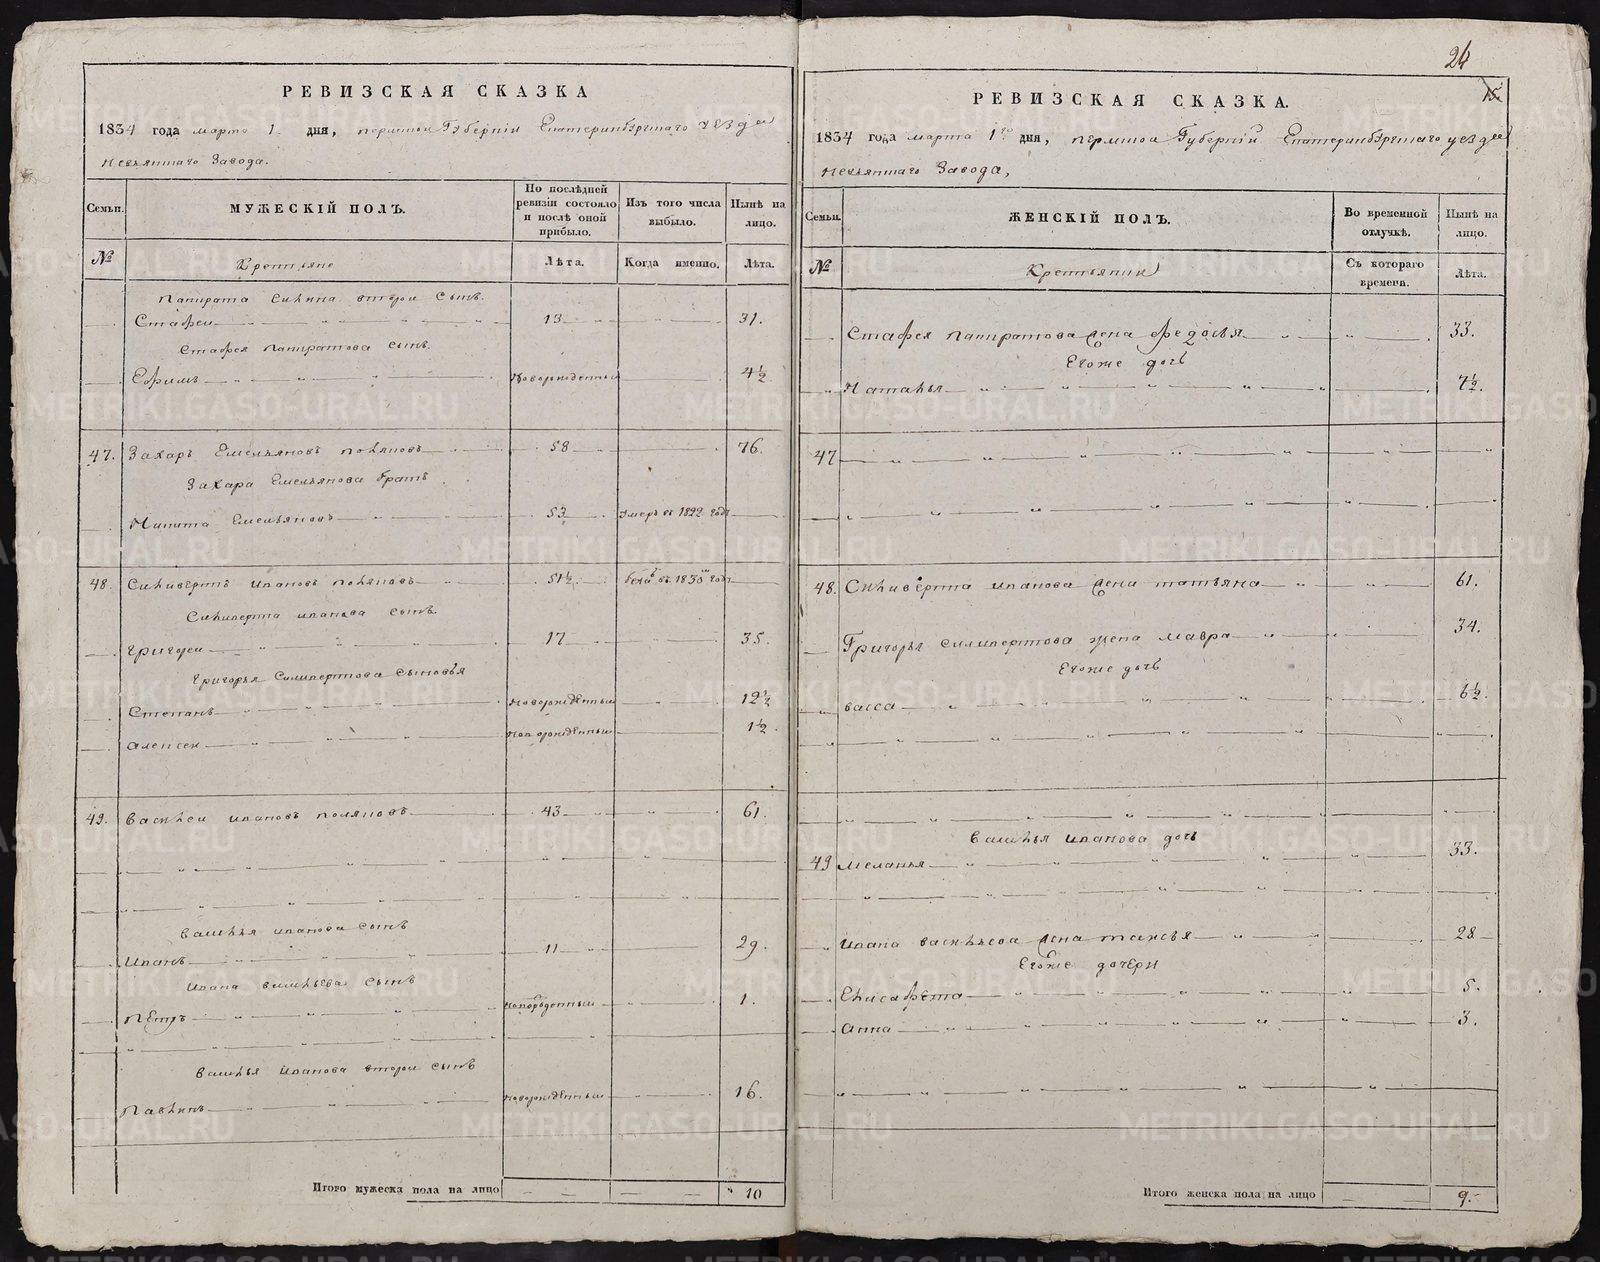 24
15.
РЕВИЗСКАЯ СКАЗКА
1834 года марта 1. дня, пермской Губерніи Екатеринбургскаго уезда
Невьянскаго Завода.
Семьи.
МУЖЕСКІЙ ПОЛЪ.
По послѣдней ревизіи состояло и послѣ оной прибыло.
Изъ того числа выбыло.
Нынѣ на лицо.
№
Крестьяне
Лѣта.
Когда именно.
Лѣта.
второи сынъ.
Стафеи 13 31.
Стафея сынъ.
Ефимъ Новорожденныи 4½
47. Захаръ Емельяновъ поляковъ 58 76.
Захара Емельянова братъ
Никита Емельяновъ 53 умеръ въ 1822 годъ
48. Силивертъ ивановъ поляковъ 51½ 1830 годъ
Силиверта иванова сынъ
григореи 17 35.
григорья Силивертова сыновья
Степанъ новорожденныи 12½
алексеи новорожденныи 1½
49. Василеи ивановъ поляковъ 43 61.
василья иванова сынъ
Иванъ 11 29.
Ивана васильева сынъ
Петръ новорожденныи 1.
василья иванова второи сынъ
Павлинъ новорожденныи 16.
Итого мужеска пола на лицо 10
РЕВИЗСКАЯ СКАЗКА.
1834 года марта 1го дня, пермской Губерніи Екатеринбургскаго уезда
Невьянскаго Завода,
Семьи.
ЖЕНСКІЙ ПОЛЪ.
Во временной отлучкѣ.
Нынѣ на лицо.
№
Съ котораго времени.
Лѣта.
Стафея жена федосья 33.
Егоже дочь
Наталья 7½.
47
48. Силиверта иванова жена татьяна 61.
Григорья силивертова жена мавра 34.
Егоже дочь
васса 6½.
василья иванова дочь
49 меланья 33.
ивана васильева жена таисья 28
Егоже дочери
Елисафета 5.
анна 3.
Итого женска пола на лицо 9.